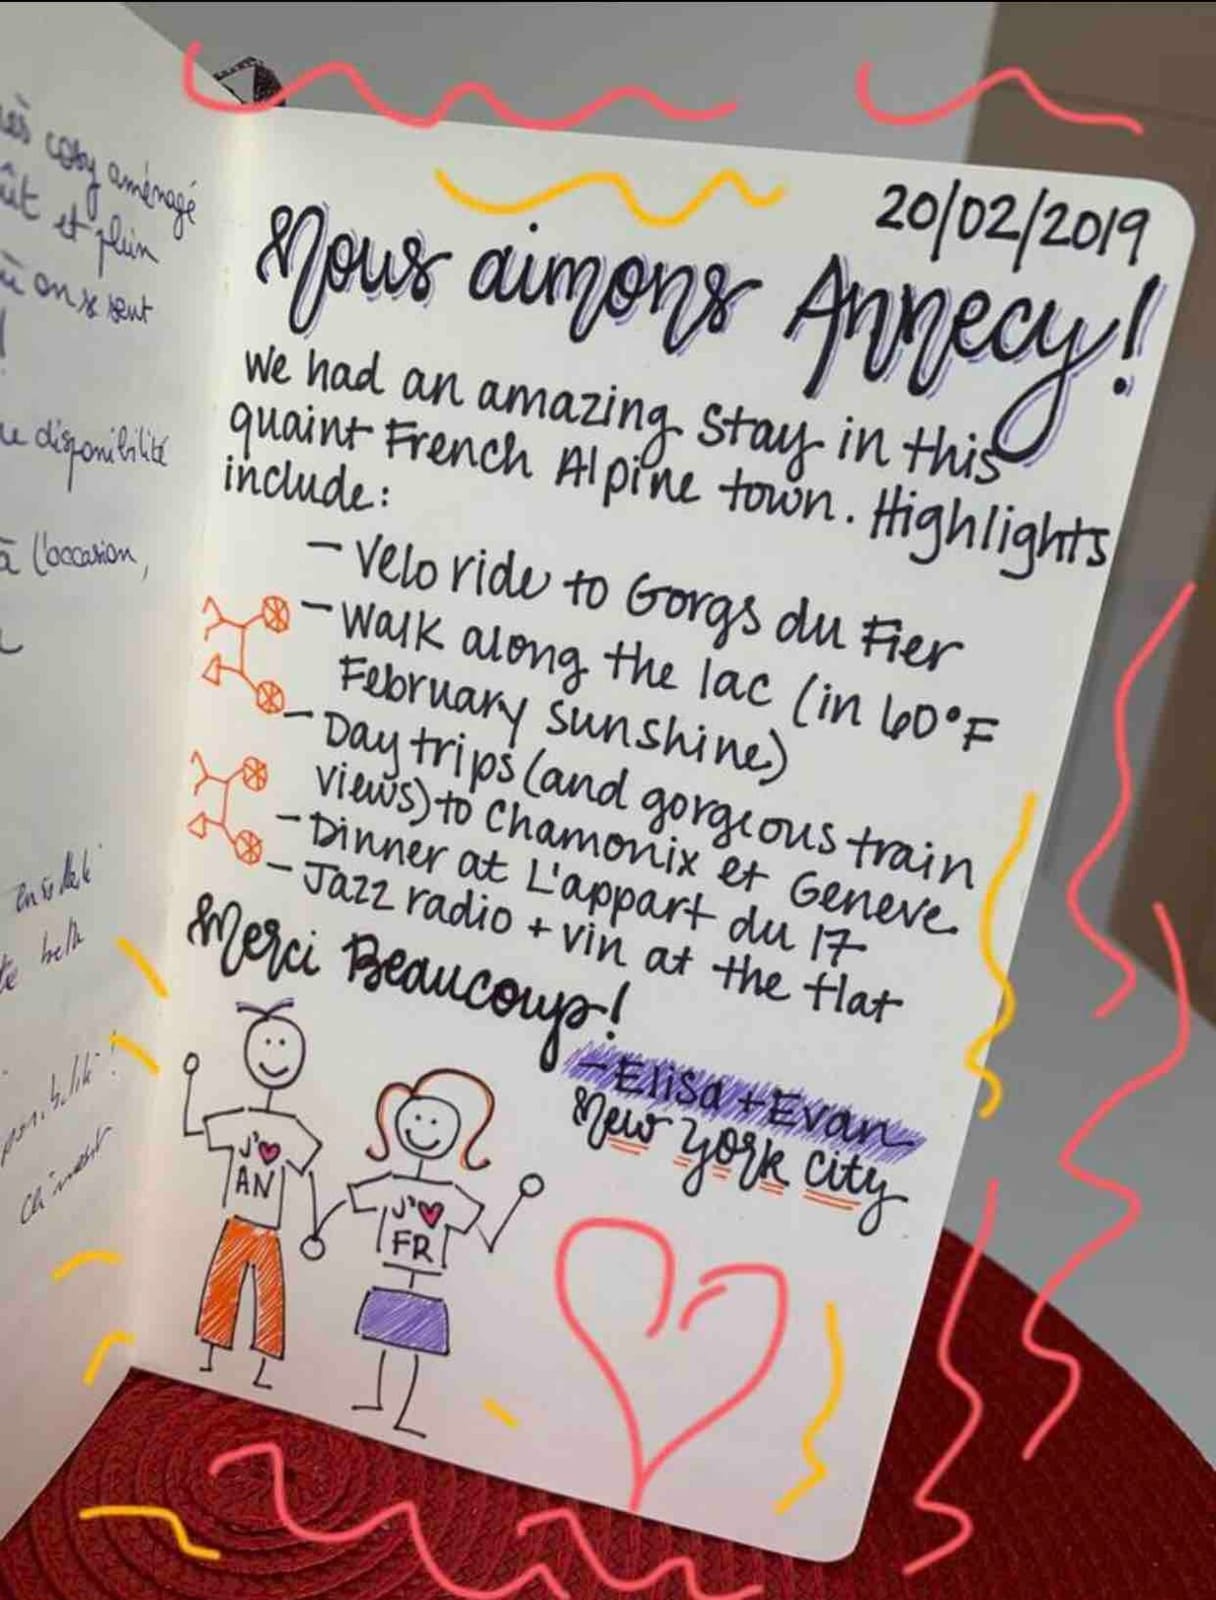 cosy aménagé
et plein
on se sent
disponibilité
à l'occasion,
20/02/2019
Nous aimons Annecy!
We had an amazing stay in this
quaint French Alpine town. Highlights
include:
- Velo ride to Gorgs du Fier
- Walk along the lac (in 60°F
February sunshine)
- Day trips (and gorgeous train
views) to Chamonix et Geneve
- Dinner at L'appart du 17
- Jazz radio + vin at the flat
Merci Beaucoup!
- Elisa + Evan
New York City
J'♥
AN
J'♥
FR